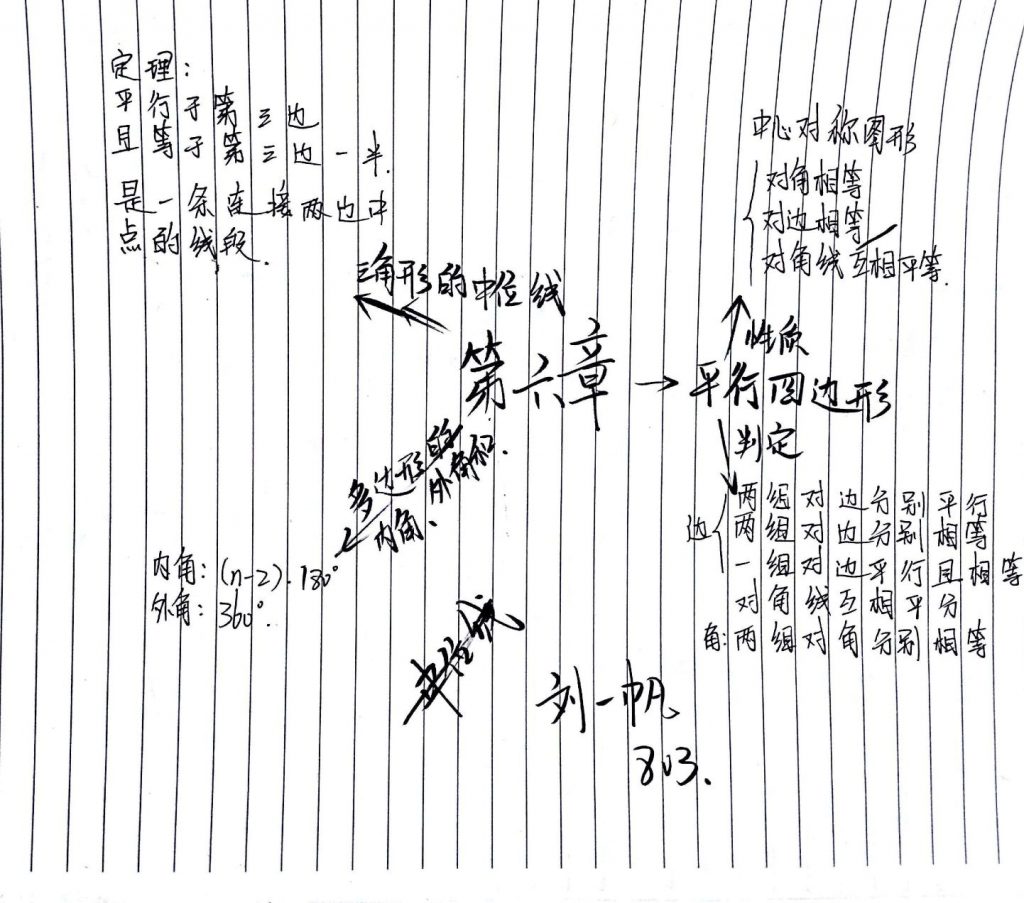 定理：
平行于第三边
且等于第三边一半.
是一条连接两边中
点的线段.
三角形的中位线
中心对称图形
对角相等
对边相等
对角线互相平等.
性质
第六章→平行四边形
判定
边
两组对边分别平行
两组对边分别相等
一组对边平行且相等
对角线互相平分
角:两组对角分别相等
多边形的
内角、外角和.
内角：(n-2)·180°
外角：360°.
刘一帆
803.